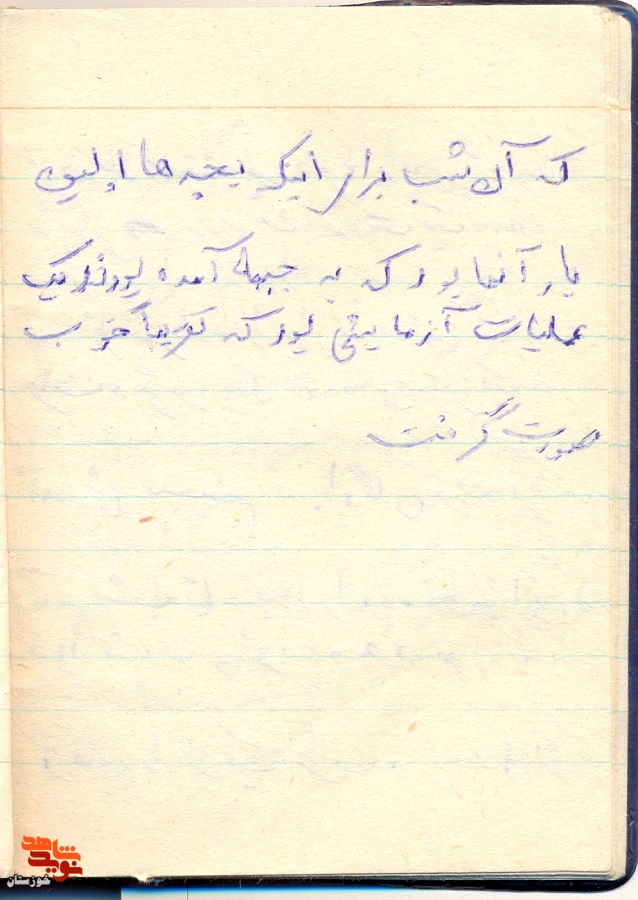 که آن شب برای اینکه بچه ها اولین
بار آنها بود که به جبهه آمده بودند یک
عملیات آزمایشی بود که تقریباً خوب
صورت گرفت
شاهد
نوید
خوزستان